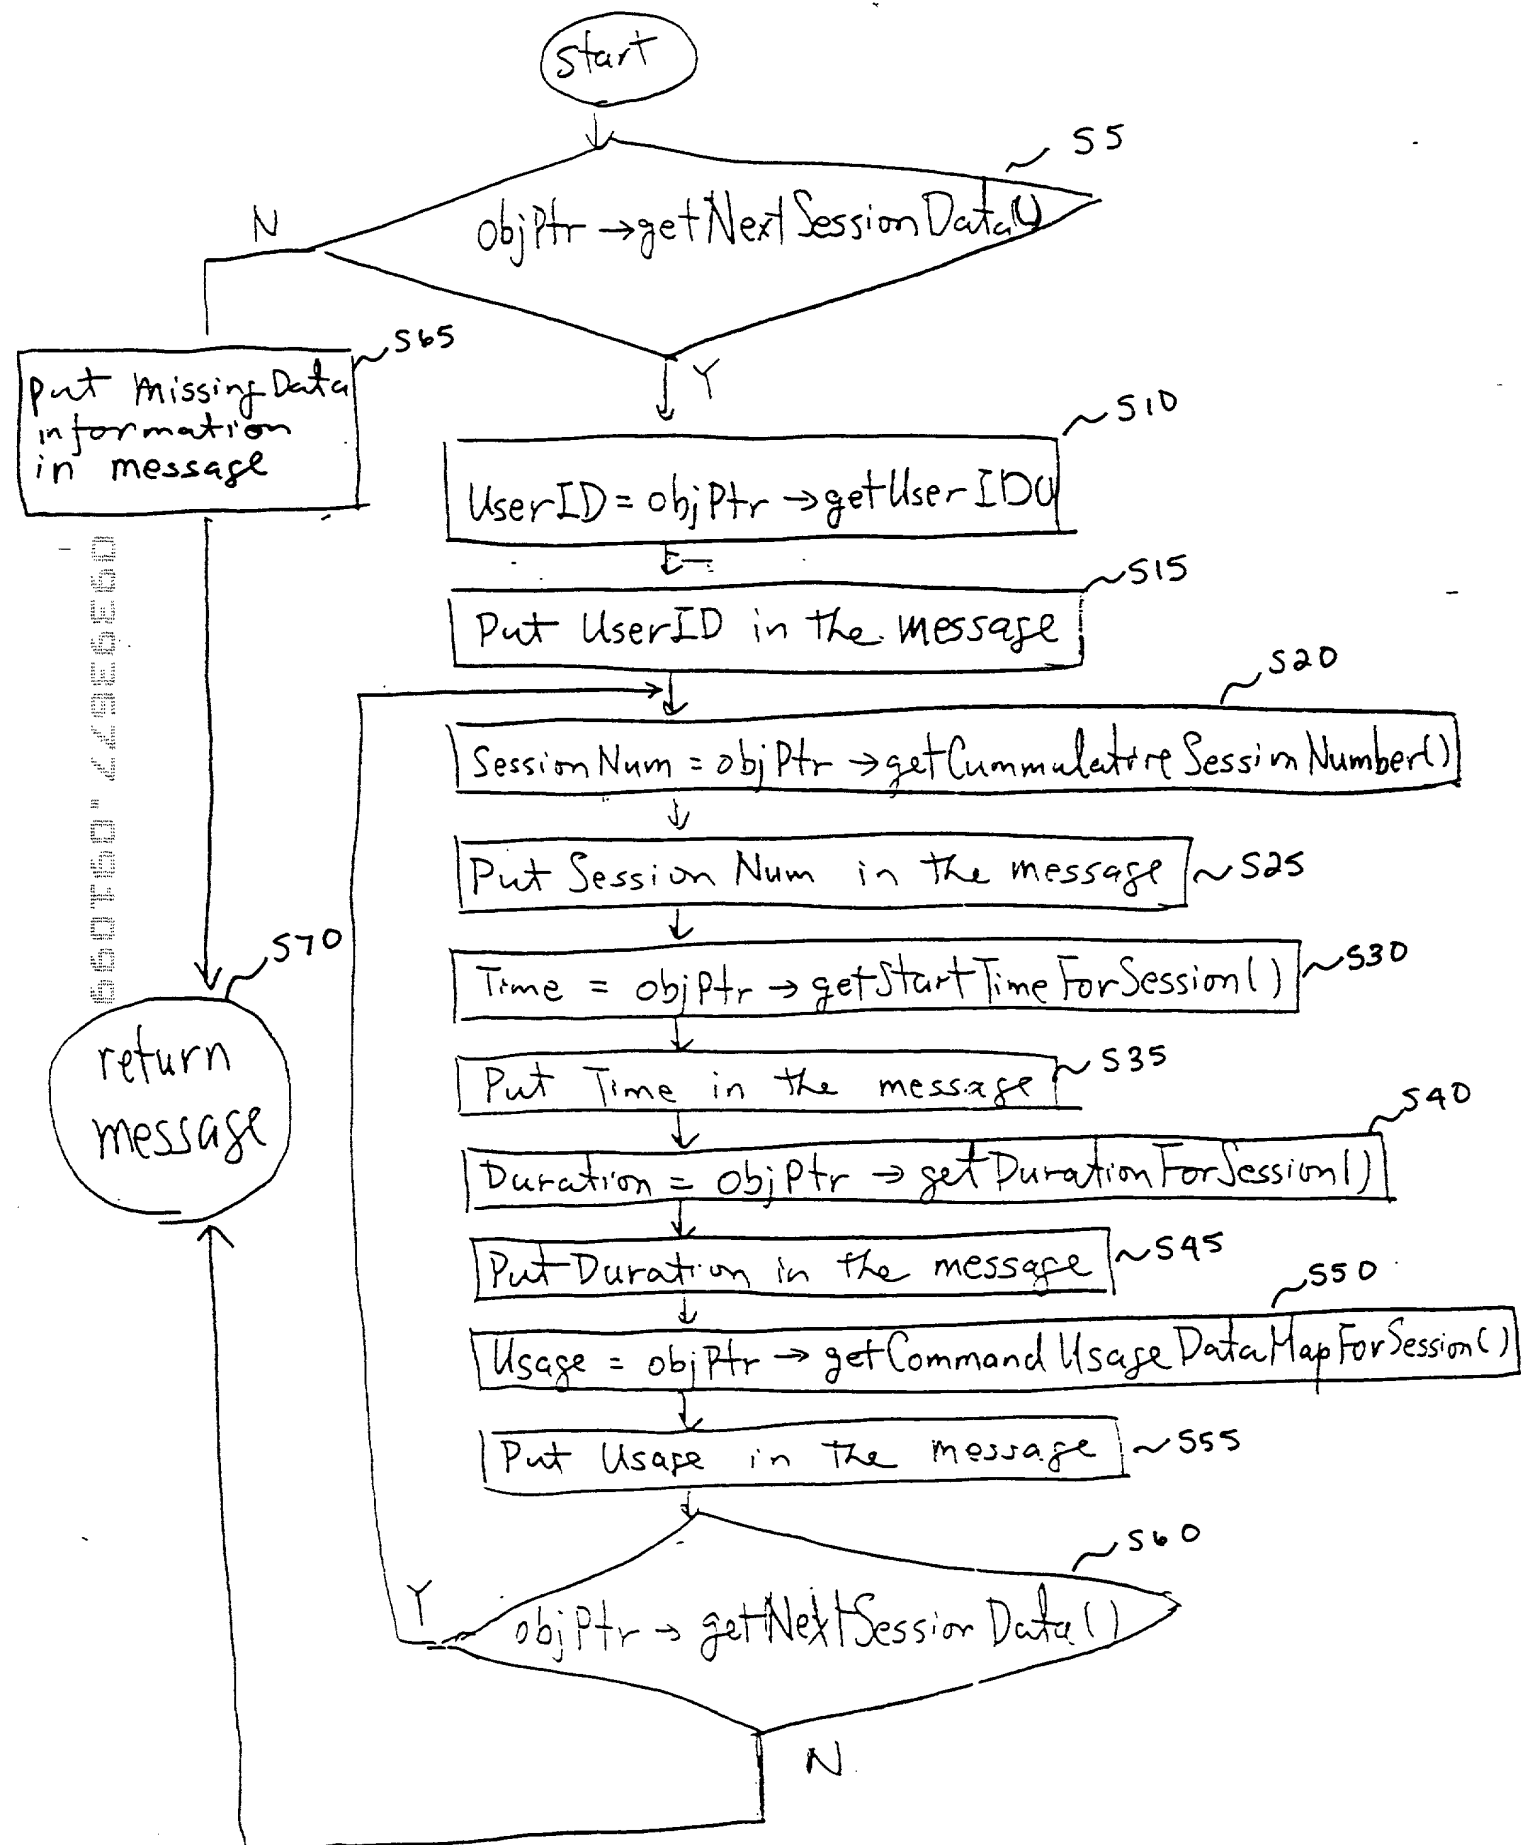 start
S5
objPtr → getNextSessionData()
N
Y
S65
put missingData
information
in message
S10
UserID = objPtr → getUserID()
S15
Put UserID in the message
S20
SessionNum = objPtr → getCummulativeSessionNumber()
Put Session Num in the message
S25
S70
return
message
Time = objPtr → getStartTimeForSession()
S30
Put Time in the message
S35
S40
Duration = objPtr → getDurationForSession()
Put Duration in the message
S45
S50
Usage = objPtr → getCommandUsageDataMapForSession()
Put Usage in the message
S55
S60
Y
objPtr → getNextSessionData()
N